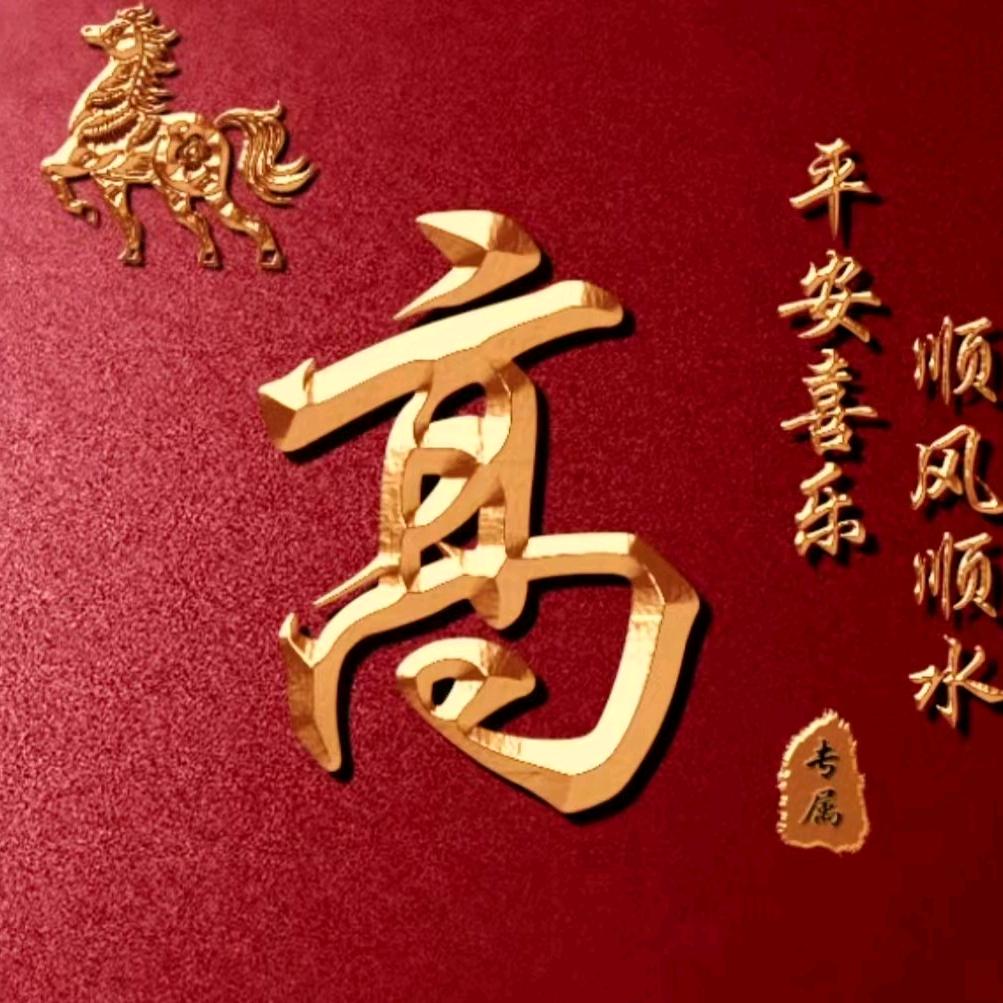 高
顺风顺水
平安喜乐
专属